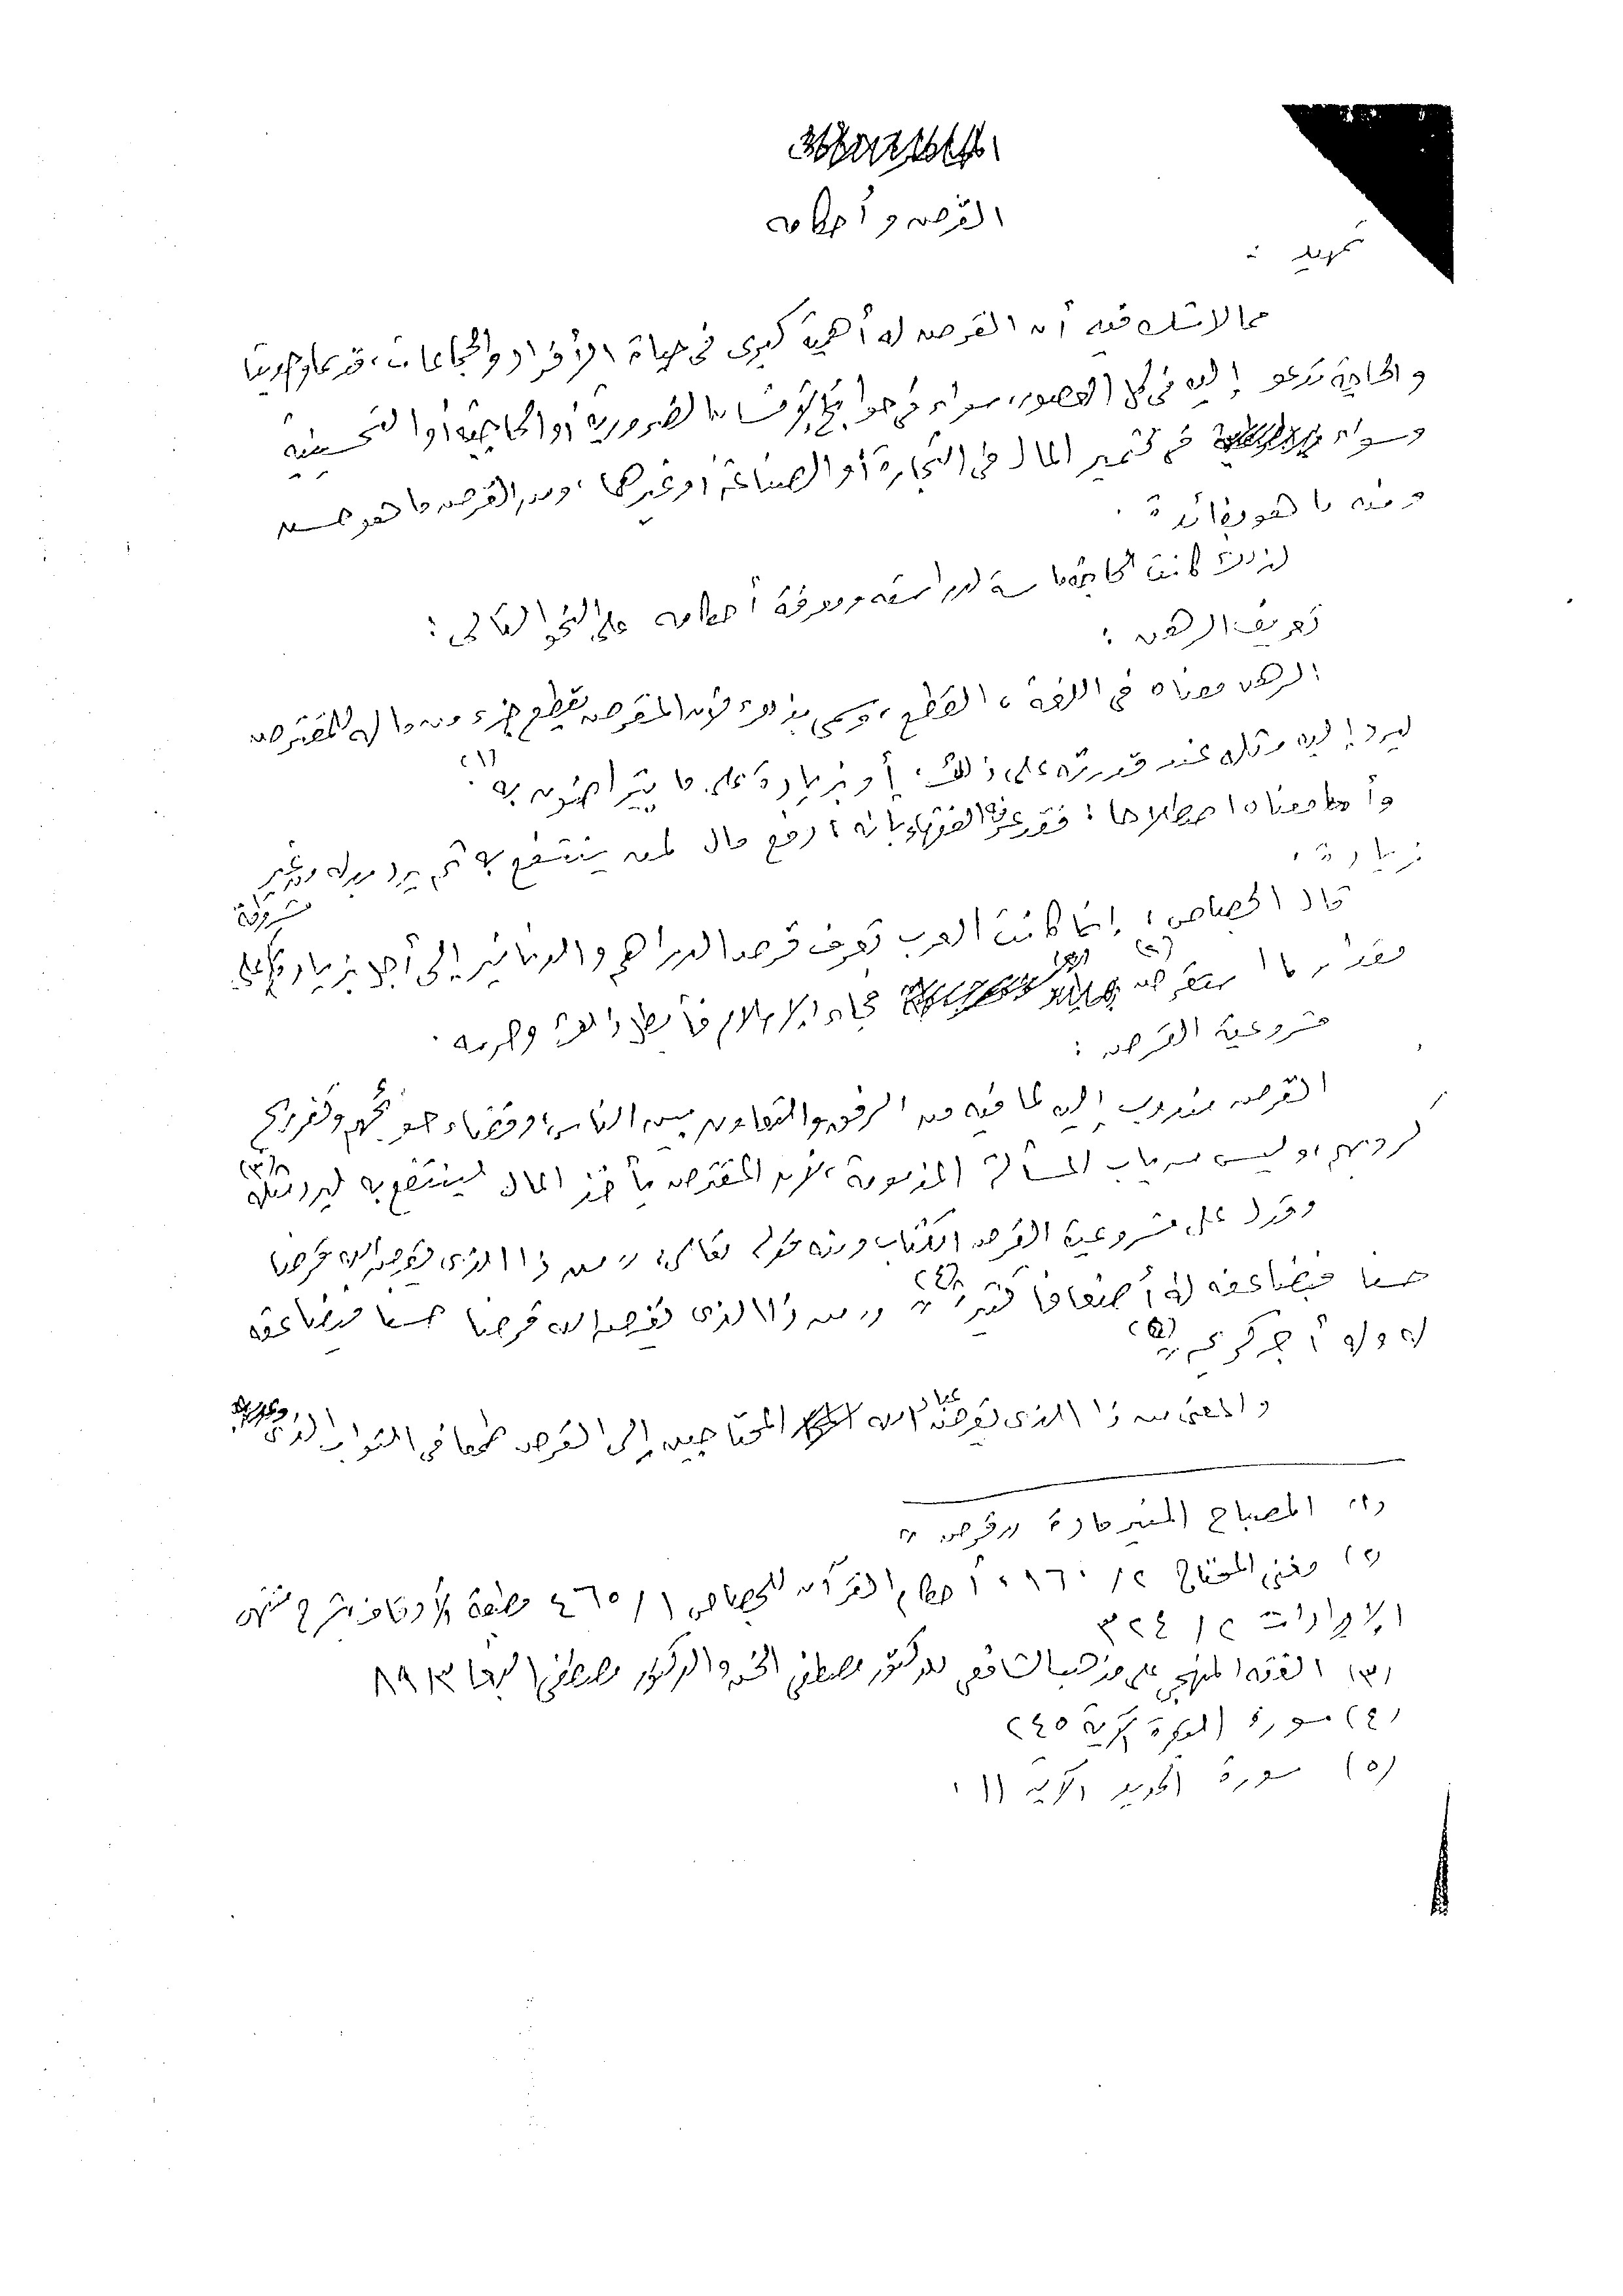 القرض وأحكامه
تمهيد :
مما لا شك فيه أن القرض له أهمية كبرى فى حياة الأفراد والجماعات، قديما وحديثا
والحاجة تدعو إليه فى كل العصور، سواء فى حوائج الإنسان الضرورية أو الحاجية أو التحسينية
وسواء فى تثمير المال فى التجارة أو الصناعة أو غيرها، ومن القرض ما هو حسن
ومنه ما هو بفائدة .
لذلك كانت الحاجة ماسة لدراسته ومعرفة أحكامه على النحو التالى :
تعريف الرهن :
الرهن معناه فى اللغة ، القطع، وسمى بذلك لأن المقرض يقطع جزء من ماله للمقترض
ليرد إليه مثله عند قدرته على ذلك، أو بزيادة على ما يتراضون به (١).
وأما معناه اصطلاحا : فقد عرفه الفقهاء بأنه ، دفع مال لمن ينتفع به ثم يرد بدله من غير
زيادة .
قال الجصاص ، إنما كانت العرب تعرف قرض الدراهم والدنانير إلى أجل بزيادة مشروطة على
مقدار ما استقرض (٢) فجاء الإسلام فأبطل ذلك وحرمه .
مشروعية القرض :
القرض مندوب إليه لما فيه من الرفق والتعاون بين الناس، وقضاء حوائجهم وتفريج
كروبهم، وليس من باب المسألة المذمومة، لأن المقترض يأخذ المال لينتفع به ليرد مثله (٣)
وقد دل على مشروعية القرض الكتاب ومنه قوله تعالى، " من ذا الذى يقرض الله قرضا
حسنا فيضاعفه له أضعافا كثيرة " (٤) " من ذا الذى يقرض الله قرضا حسنا فيضاعفه
له وله أجر كريم " (٥)
والمعنى من ذا الذى يقرض عباد الله المحتاجين إلى القرض طمعا فى الثواب الذى
(١) المصباح المنير مادة " قرض "
(٢) مغنى المحتاج ٢/ ١٦٠ ، أحكام القرآن للجصاص ١/ ٤٦٥ مطبعة الأوقاف، شرح منتهى
الإرادات ٢/ ٣٢٤
(٣) الفقه المنهجى على مذهب الشافعى للدكتور مصطفى الخن والدكتور مصطفى البغا ٨٩/٣
(٤) سورة البقرة الآية ٢٤٥
(٥) سورة الحديد الآية ١١ .